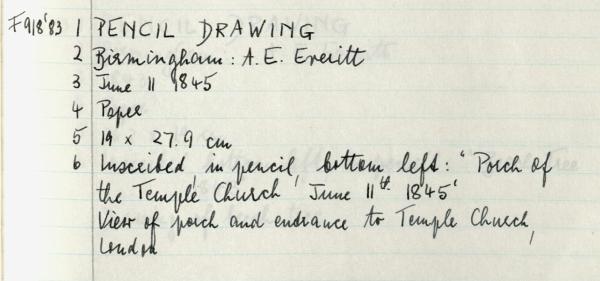 F918'83 1 PENCIL DRAWING
2 Birmingham: A.E. Everitt
3 June 11 1845
4 Paper
5 19 x 27.9 cm
6 Inscribed, in pencil, bottom left: 'Porch of
the Temple Church, June 11th 1845'
View of porch and entrance to Temple Church,
London